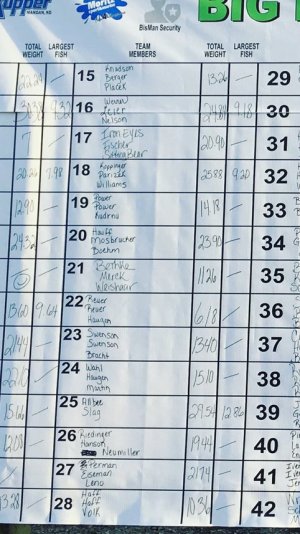 upper
MANDAN, ND
Moritz
BisMan Security
BIG
TOTAL WEIGHT LARGEST FISH TEAM MEMBERS TOTAL WEIGHT LARGEST FISH
15 Knudson Berger Placek 13.26 — 29
9.32 16 Leier Nelson 24.89 9.18 30
17 Iron Eyes Fischer 20.90 — 31
7.98 18 Williams 25.88 9.20 32
12.90 — 19 Power Power Kudrna 14.18 — 33
24.32 — 20 Hauff Mosbrucher Boehm 23.90 — 34
21 Bethke Merck 11.26 — 35
13.60 9.64 22 Reuer Reuer Haugen 16.18 — 36
21.44 — 23 Swenson Swenson Bracht 13.40 — 37
22.10 — 24 Wahl Haugen Martin 15.10 — 38
15.66 — 25 Allbee Slag 29.54 12.86 39
12.08 — 26 Riedinger Hanson Neumiller 19.44 — 40
27 Perman Eiseman Leno 21.74 — 41
13.28 — 28 Hoff Hoff Volk 10.36 — 42